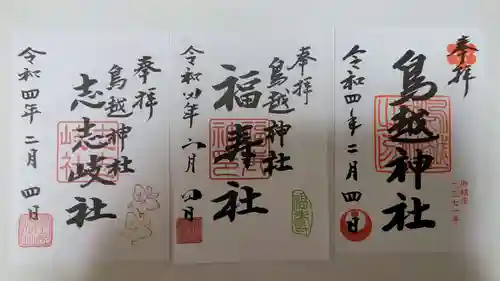 奉拝
鳥越神社
令和四年二月四日
御鎮座
一三七一年
奉拝
鳥越神社
福寿社
令和四年二月四日
奉拝
鳥越神社
志志岐社
令和四年二月四日